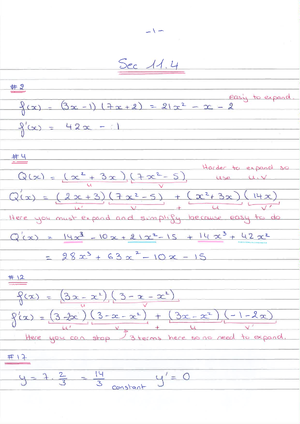 -1-
Sec 11.4
#2
easy to expand
f(x) = (3x-1)(7x+2) = 21x² - x - 2
f'(x) = 42x - 1
#4
Harder to expand so
Q(x) = (x² + 3x)(7x² - 5) use u.v
u v
Q'(x) = (2x+3)(7x²-5) + (x²+3x)(14x)
u' v + u v'
Here you must expand and simplify because easy to do
Q'(x) = 14x³ - 10x + 21x² - 15 + 14x³ + 42x²
= 28x³ + 63x² - 10x - 15
#12
f(x) = (3x - x²)(3 - x - x²)
u v
f'(x) = (3-2x)(3-x-x²) + (3x-x²)(-1-2x)
u' v + u v'
Here you can stop 3 terms here so no need to expand.
#17
y = 7·2/3 = 14/3 y' = 0
constant